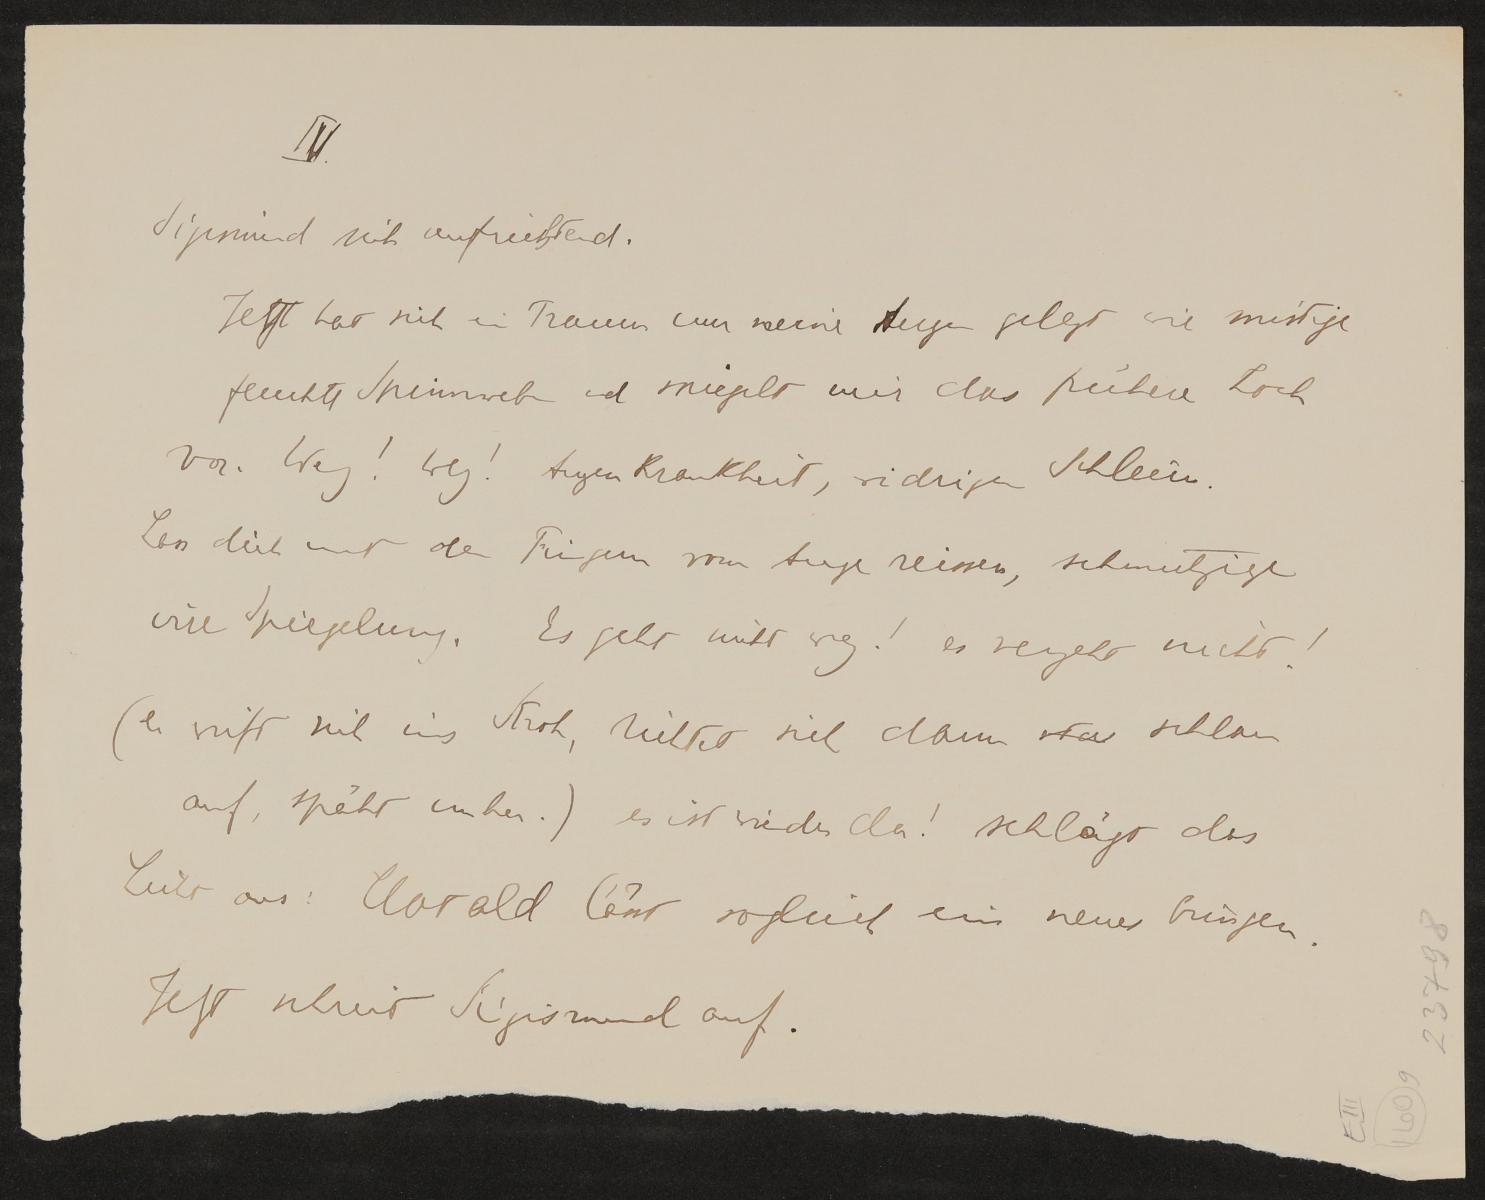 IV.
Sigismund sich aufrichtend.
Jetzt hat sich ein Traum um meine Augen gelegt wie mistige
feuchte Spinnweb und spiegelt mir das frühere Loch
vor. Weg! weg! Augenkrankheit, widriger Schleim.
Lass dich mit den Fingern vom Auge reissen, schmutzige
irre Spiegelung. Es geht nicht weg! es vergeht nicht!
(er wirft sich ins Stroh, richtet sich dann schlau
auf, späht umher.) es ist wieder da! schlägt das
Licht aus: lässt sogleich ein neues bringen.
Jetzt schreit Sigismund auf.
23798
E III
160 9